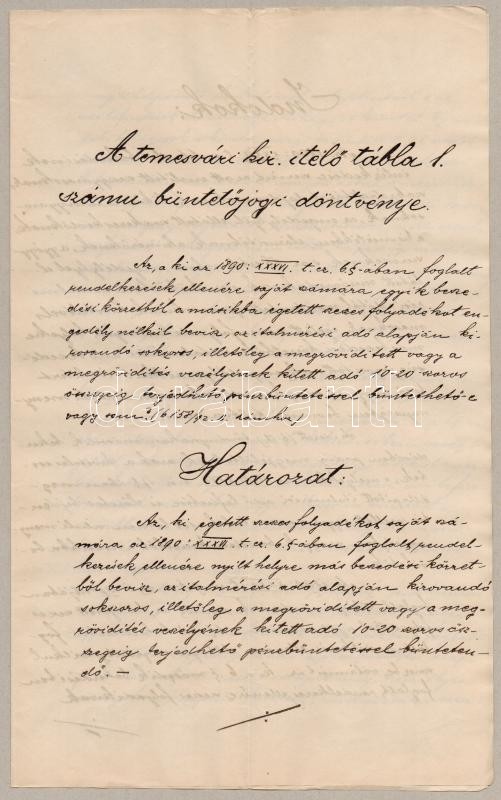 A temesvári kir. itélő tábla 1.
számu büntetőjogi döntvénye.
Az, a ki az 1890: XXXVI. t. cz. 6 §-ában foglalt
rendelkezések ellenére saját számára egyik besze-
dési körzetből a másikba égetett szeszes folyadékot en-
gedély nélkül beviz, az italmérési adó alapján ki-
rovandó sokszoros, illetőleg a megröviditett vagy a
megrövidités veszélyének kitett adó 10-20 szoros
összegig terjedhető pénzbüntetéssel büntethető-e
vagy sem?
Határozat:
Az, ki égetett szeszes folyadékot saját szá-
mára az 1890: XXXVI. t. cz. 6. §-ában foglalt rendel-
kezések ellenére nyilt helyre más beszedési körzet-
ből beviz, az italmérési adó alapján kirovandó
sokszoros, illetőleg a megröviditett vagy a meg-
rövidités veszélyének kitett adó 10-20 szoros ösz-
szegéig terjedhető pénzbüntetéssel bünteten-
dő. —
darabanth